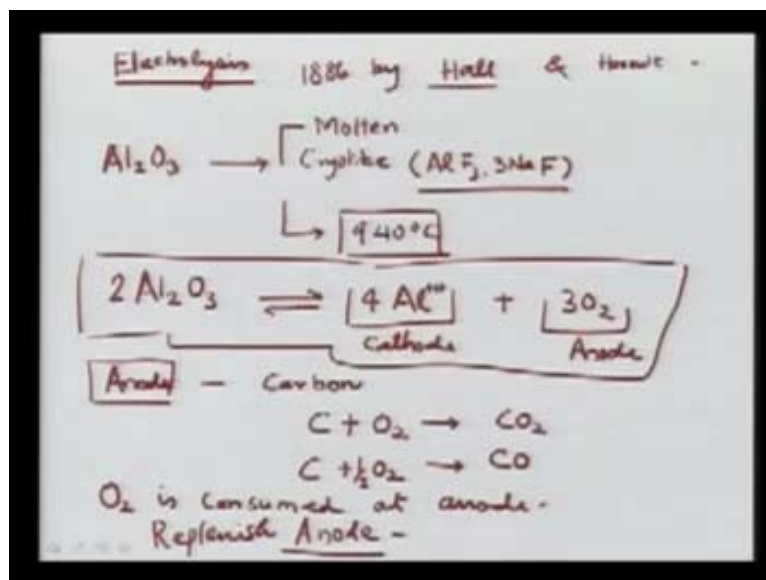 Electrolysis 1886 by Hall &
Al₂O₃ → Molten
Cryolite (AlF₃, 3NaF)
→ 940°C
2 Al₂O₃ ⇌ 4 Al⁺⁺⁺ + 3O₂
Cathode Anode
Anode – Carbon
C + O₂ → CO₂
C + ½O₂ → CO
O₂ is consumed at anode.
Replenish Anode –